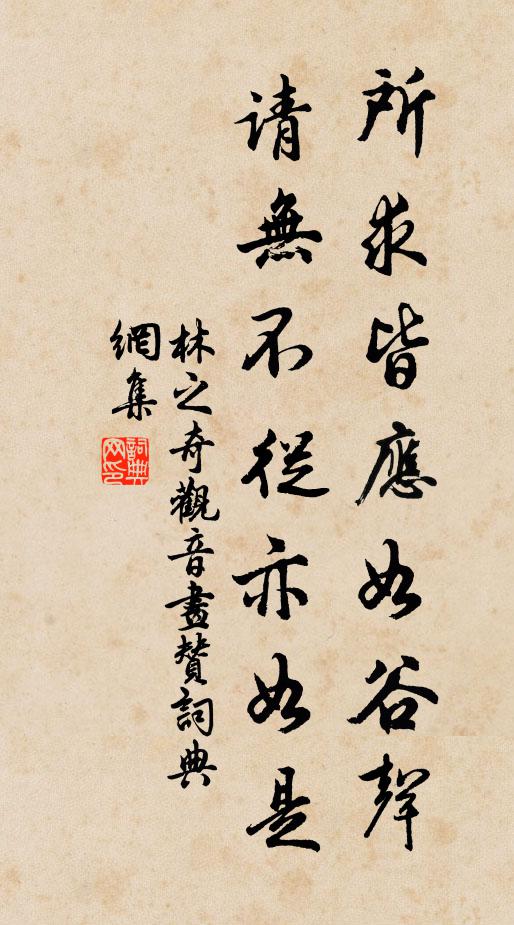 所求皆應如谷聲
請無不從亦如是
林之奇觀音畫贊詞典
網集
詞典
网印